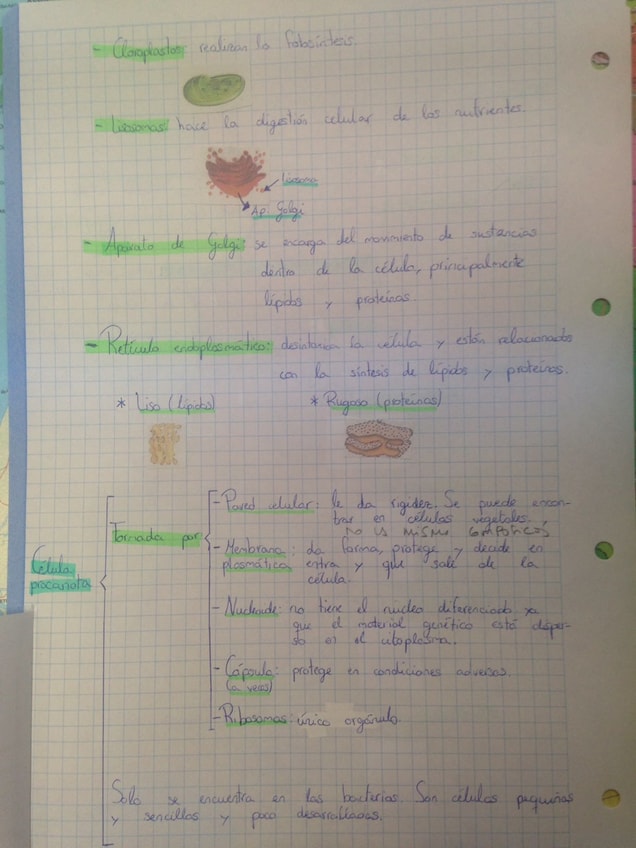 - Cloroplastos: realizan la fotosíntesis.
- Lisosomas: hace la digestión celular de los nutrientes.
lisosoma
Ap. Golgi
- Aparato de Golgi: se encarga del movimiento de sustancias
dentro de la célula, principalmente
lípidos y proteínas.
- Retículo endoplasmático: desintoxica la célula y están relacionados
con la síntesis de lípidos y proteínas.
* Liso (lípidos) * Rugoso (proteínas)
Célula
procariota
Formada por
- Pared celular: le da rigidez. Se puede encon-
trar en células vegetales.
no es misma
- Membrana plasmática: da forma, protege y decide en
entra y que sale de la
célula.
- Nucleoide: no tiene el nucleo diferenciado ya
que el material genético está disper-
so en el citoplasma.
- Cápsula: protege en condiciones adversas.
(a veces)
- Ribosomas: único orgánulo.
Solo se encuentra en las bacterias. Son células pequeñas
y sencillas y poco desarrolladas.